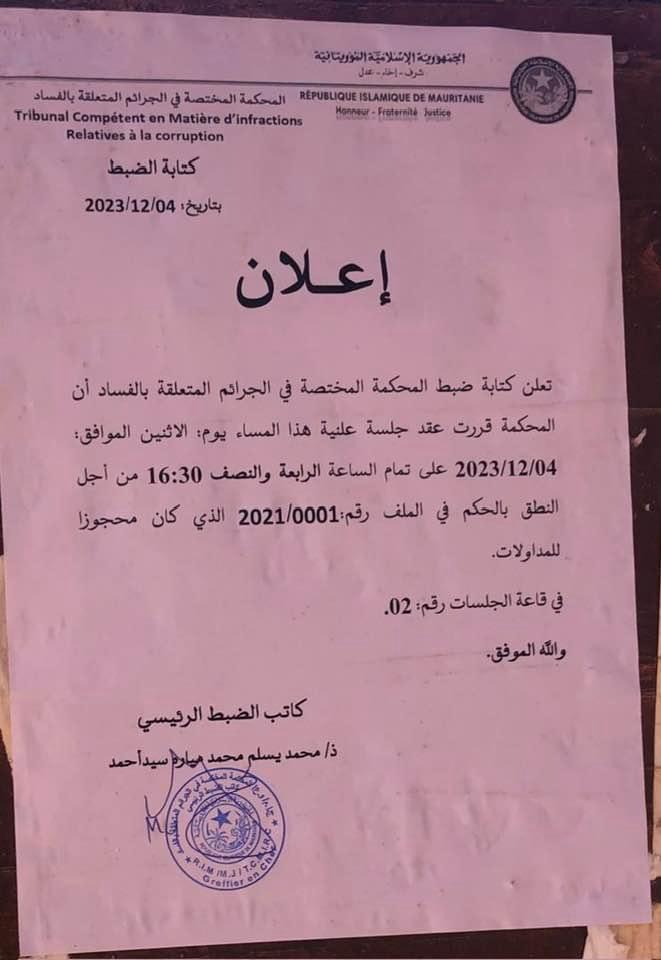 الجمهورية الإسلامية الموريتانية
شرف - إخاء - عدل
RÉPUBLIQUE ISLAMIQUE DE MAURITANIE
Honneur - Fraternité Justice
المحكمة المختصة في الجرائم المتعلقة بالفساد
Tribunal Compétent en Matière d'infractions
Relatives à la corruption
كتابة الضبط
بتاريخ: 2023/12/04
إعـلان
تعلن كتابة ضبط المحكمة المختصة في الجرائم المتعلقة بالفساد أن
المحكمة قررت عقد جلسة علنية هذا المساء يوم: الاثنين الموافق:
2023/12/04 على تمام الساعة الرابعة والنصف 16:30 من أجل
النطق بالحكم في الملف رقم:2021/0001 الذي كان محجوزا
للمداولات.
في قاعة الجلسات رقم: 02.
والله الموفق.
كاتب الضبط الرئيسي
ذ/ محمد يسلم محمد ميارة سيدأحمد
Greffier en Chef